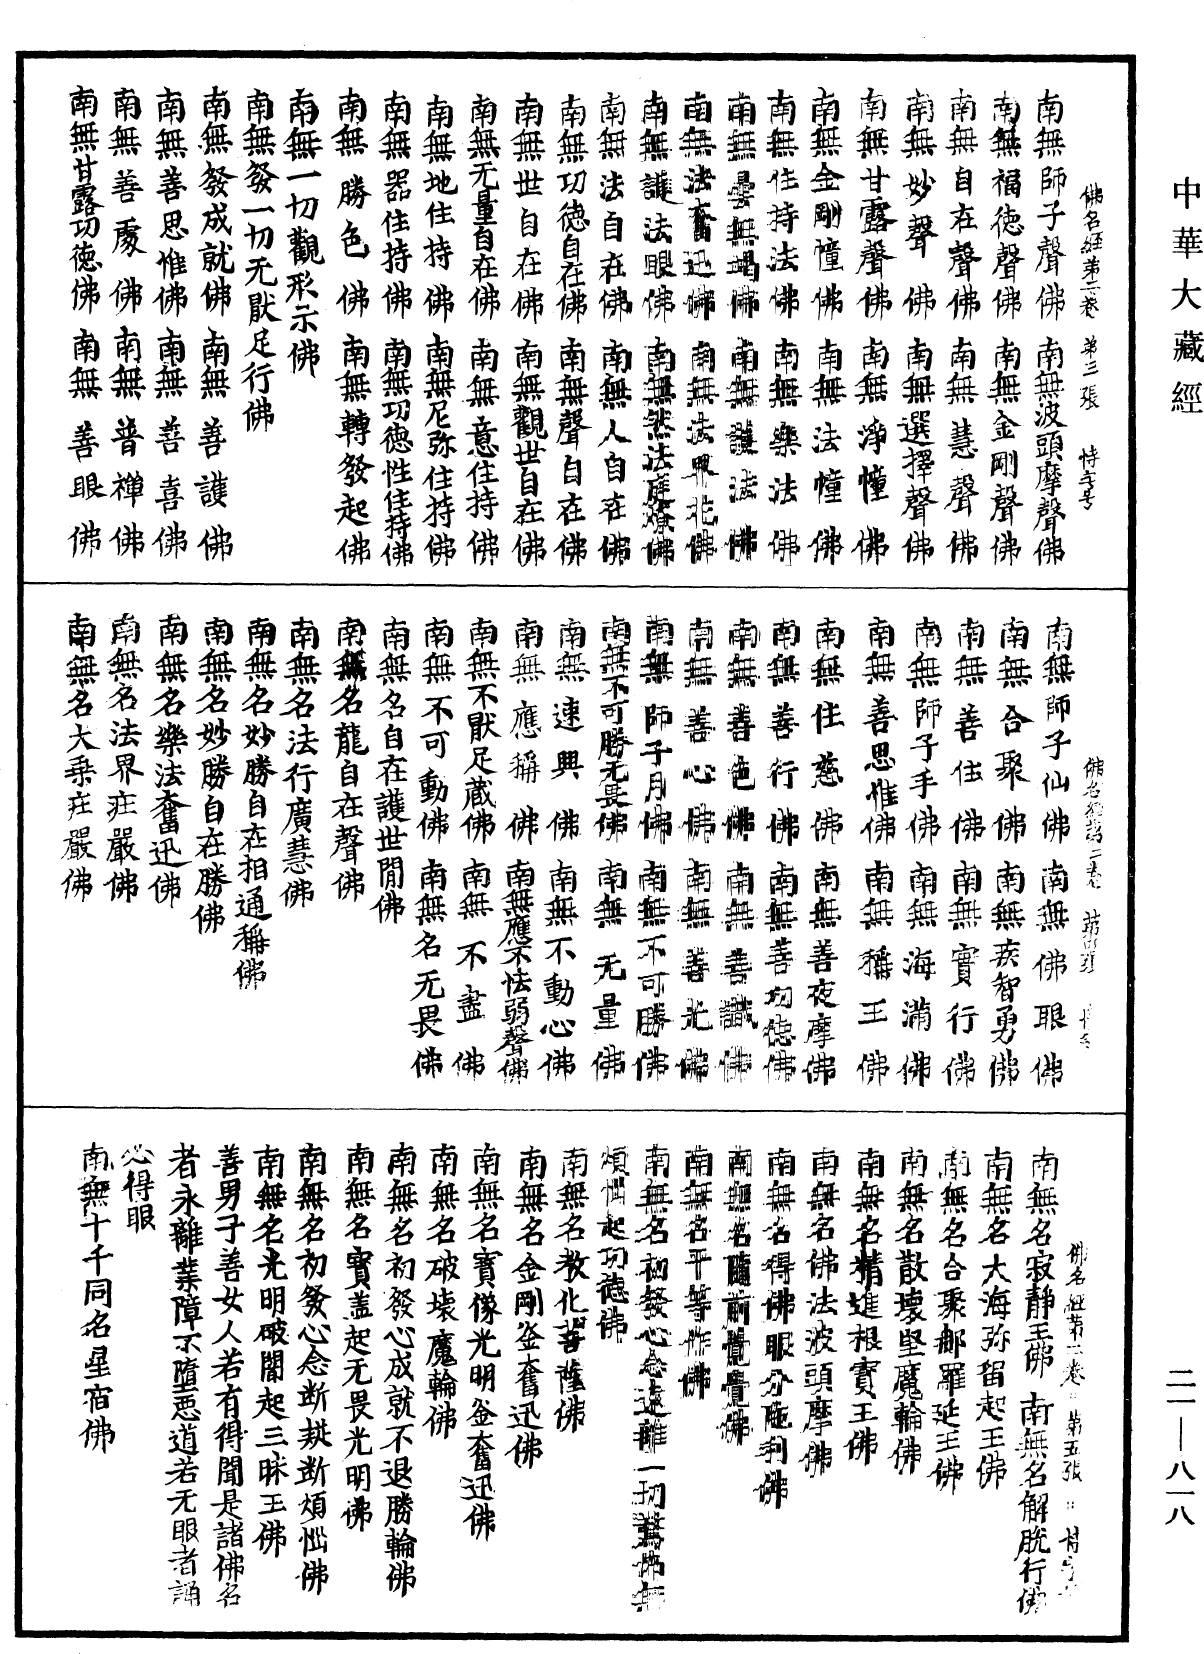 中華大藏經
二一—八一八
佛名經第二卷 第三張 恃字号
南無師子聲佛 南無波頭摩聲佛
南無福德聲佛 南無金剛聲佛
南無自在聲佛 南無慧聲佛
南無妙聲佛 南無選擇聲佛
南無甘露聲佛 南無淨幢佛
南無金剛幢佛 南無法幢佛
南無住持法佛 南無樂法佛
南無曇無竭佛 南無護法佛
南無法奮迅佛 南無法界花佛
南無護法眼佛 南無然法庭燎佛
南無法自在佛 南無人自在佛
南無功德自在佛 南無聲自在佛
南無世自在佛 南無觀世自在佛
南無无量自在佛 南無意住持佛
南無地住持佛 南無尼弥住持佛
南無器住持佛 南無功德性住持佛
南無勝色佛 南無轉發起佛
南無一切觀形示佛
南無發一切无猒足行佛
南無發成就佛 南無善護佛
南無善思惟佛 南無善喜佛
南無善䖏佛 南無普禪佛
南無甘露功德佛 南無善眼佛
佛名經第二卷
南無師子仙佛 南無佛眼佛
南無合聚佛 南無疾智勇佛
南無善住佛 南無實行佛
南無師子手佛 南無海滿佛
南無善思惟佛 南無稱王佛
南無住慈佛 南無善夜摩佛
南無善行佛 南無善功德佛
南無善色佛 南無善識佛
南無善心佛 南無善光佛
南無師子月佛 南無不可勝佛
南無不可勝无畏佛 南無无量佛
南無速興佛 南無不動心佛
南無應稱佛 南無應不怯弱聲佛
南無不猒足藏佛 南無不盡佛
南無不可動佛 南無名无畏佛
南無名自在護世間佛
南無名龍自在聲佛
南無名法行廣慧佛
南無名妙勝自在相通稱佛
南無名妙勝自在勝佛
南無名樂法奮迅佛
南無名法界疘嚴佛
南無名大乘疘嚴佛
佛名經第二卷 第五張
南無名寂靜王佛 南無名解脫行佛
南無名大海弥留起王佛
南無名合聚郍羅延王佛
南無名散壞堅魔輪佛
南無名精進根寶王佛
南無名佛法波頭摩佛
南無名得佛眼分陁利佛
南無名隨前覺覺佛
南無名平等作佛
南無名初發心念遠離一切驚怖無
煩惱起功德佛
南無名教化菩薩佛
南無名金剛釜奮迅佛
南無名寶像光明釜奮迅佛
南無名破壞魔輪佛
南無名初發心成就不退勝輪佛
南無名寶盖起无畏光明佛
南無名初發心念断疑断煩惱佛
南無名光明破闇起三昧王佛
善男子善女人若有得聞是諸佛名
者永離業障不墮惡道若无眼者誦
必得眼
南無十千同名星宿佛